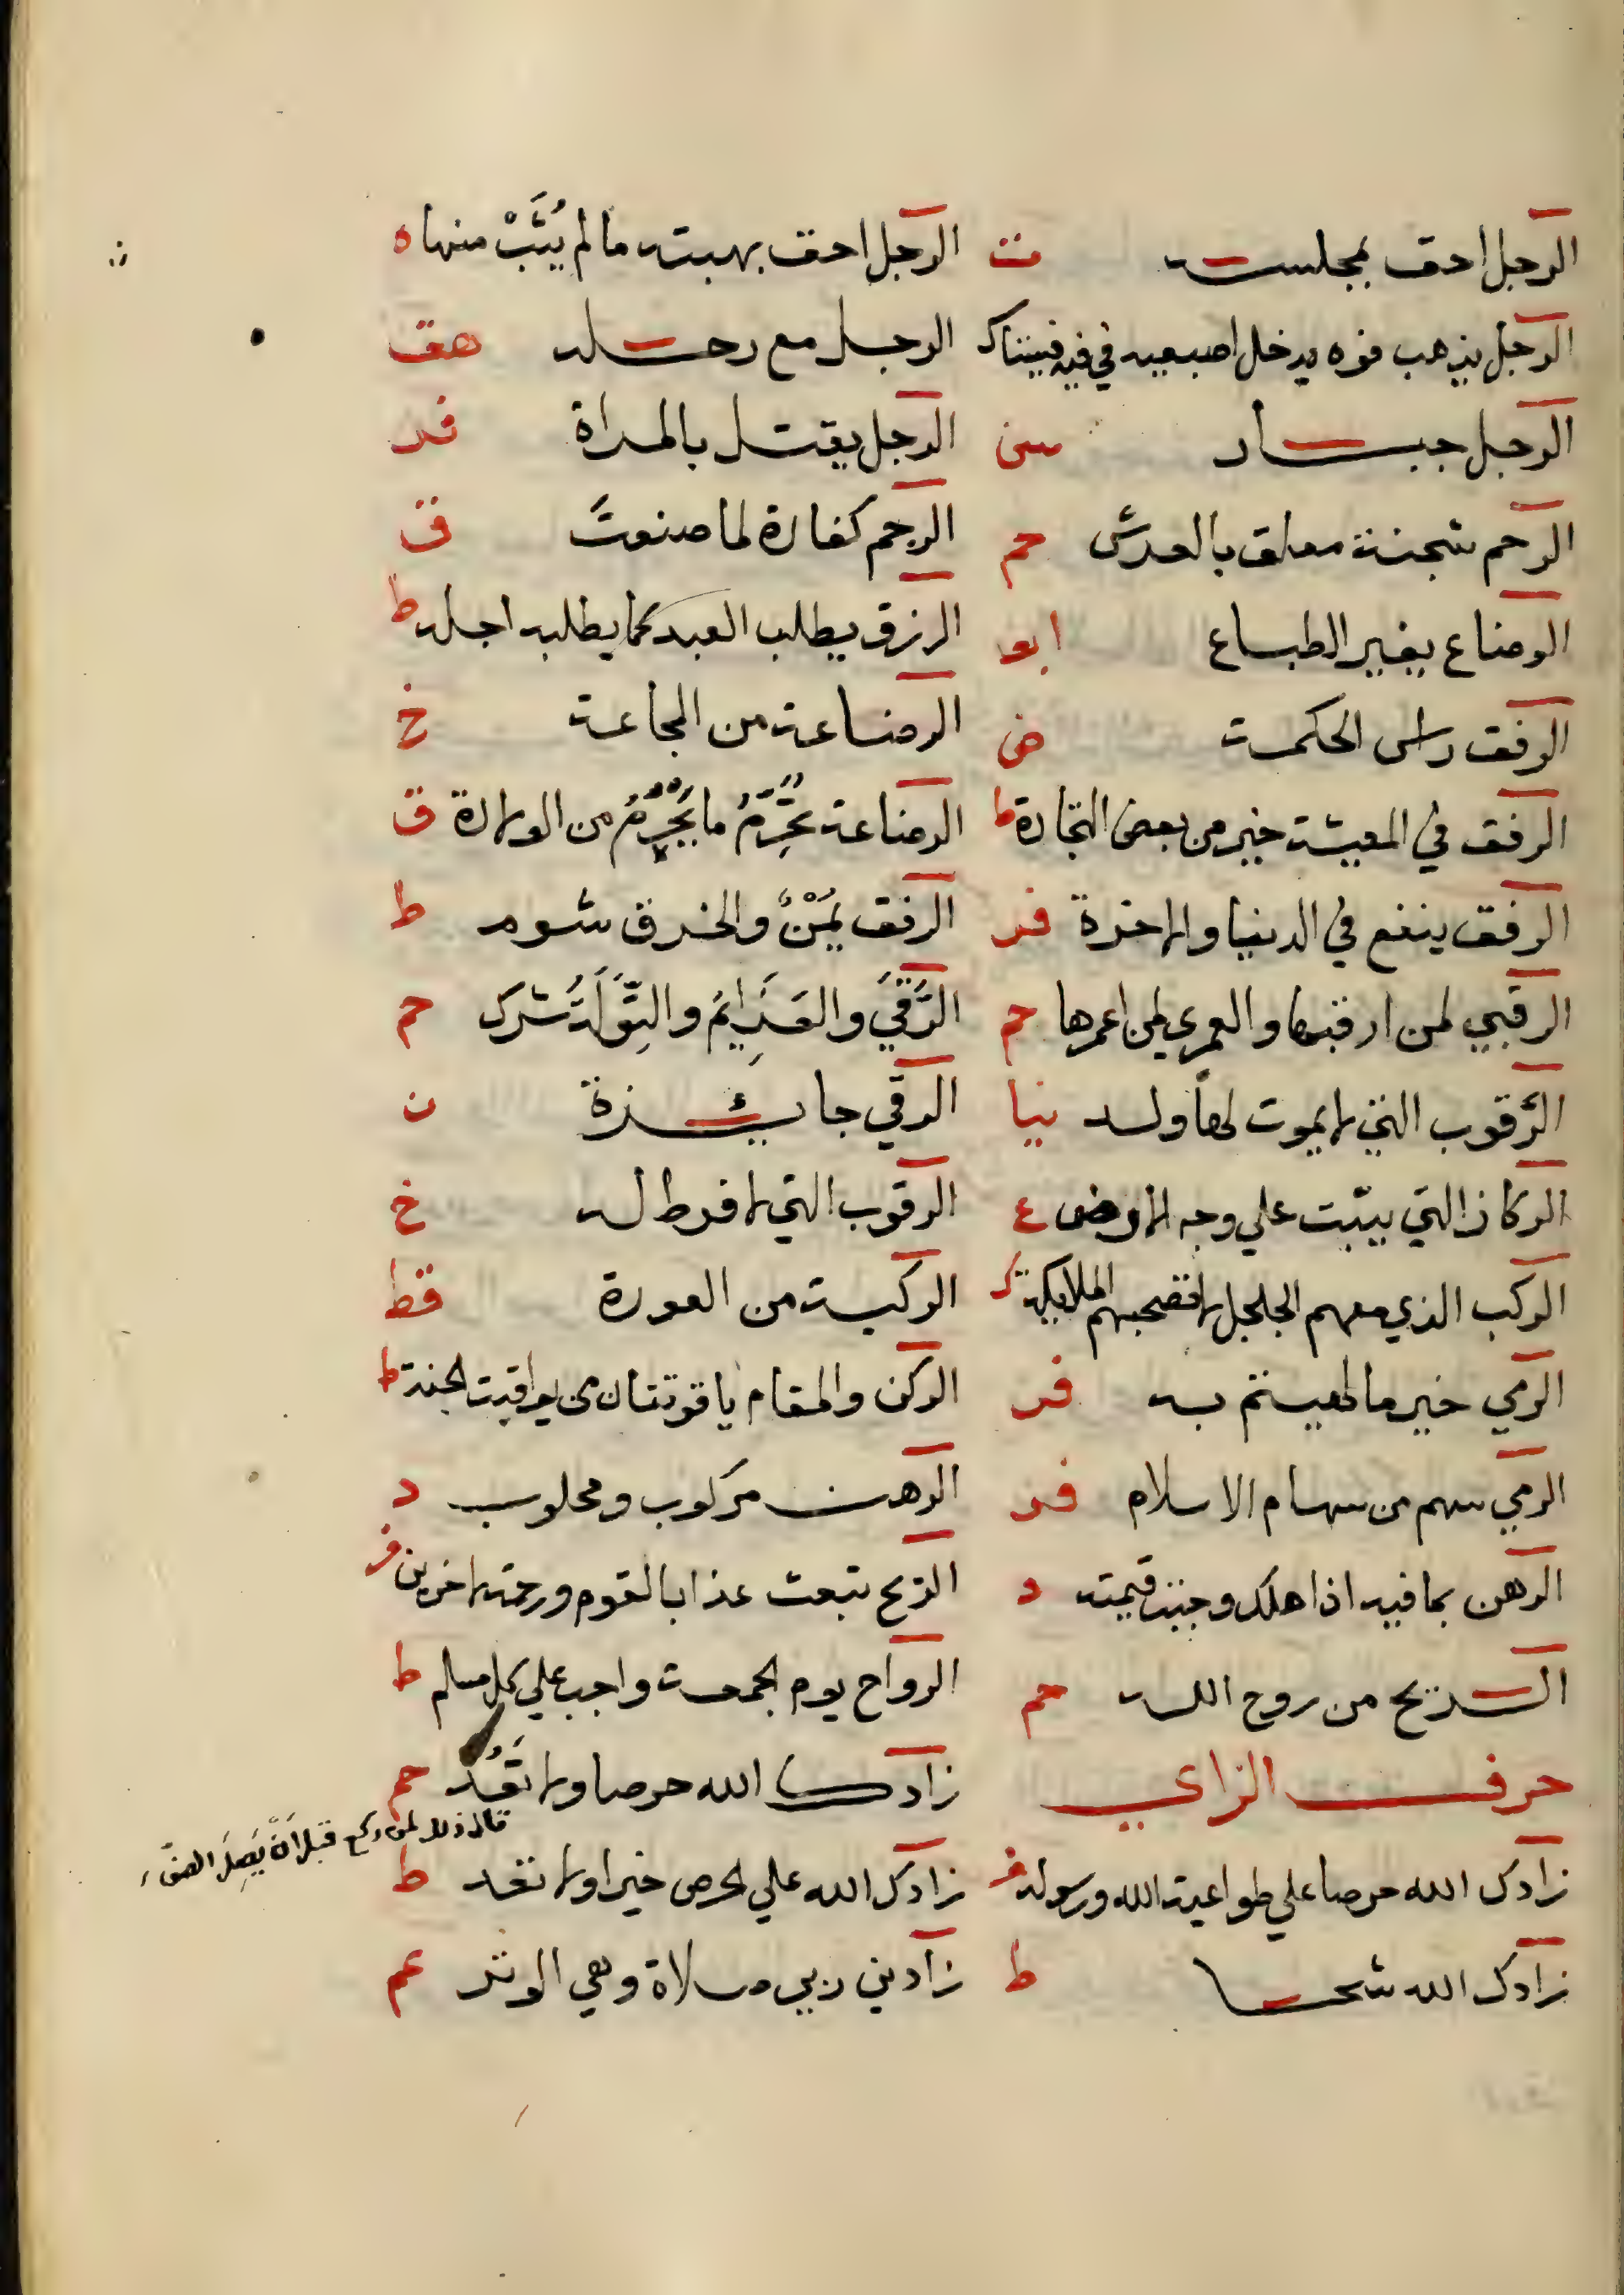 الرجل احق بمجلسه ت الرجل احق بهبته ما لم يُثَبْ منها ه
الرجل يذهب فوه يدخل اصبعيه في فيه فيستاك الرجل مع رحله هق
الرجل جبار سن الرجل يقتل بالمراة فر
الرحم شجنة معلق بالعرش حم الرجم كفارة لما صنعتَ ق
الرضاع يغير الطباع ابو الرزق يطلب العبد كما يطلبه اجله ط
الرفق راس الحكمة ض الرضاعة من المجاعة خ
الرفق في المعيشة خير من بعض التجارة ط الرضاعة تُحَرِّمُ ما يُحَرِّمُ من الولادة ق
الرفق ينفع في الدنيا والاخرة فر الرفق يُمْنٌ والخرق شوم ط
الرقبي لمن ارقبها والعمري لمن اعمرها حم الرُّقَيَ والعَزَايِمُ والتِّوَلَةُ شرك حم
الرَّقوب التي لا يموت لها ولد نيا الرقي جائزة ن
الركاز التي ينبت علي وجه الارض ع الرقوب التي لا فرط له خ
الركب الذي معهم الجلجل لا تصحبهم الملايكة ك الركبة من العورة قط
الرمي خير ما لهيتم به فر الركن والمقام ياقوتتان من يواقيت الجنة ط
الرمي سهم من سهام الاسلام فر الرهن مركوب ومحلوب د
الرهن بما فيه اذا هلك وجبت قيمته د الريح تبعث عذابا لقوم ورحمة لاخرين فر
الريح من روح الله حم الرواح يوم الجمعة واجب علي كل مسلم ط
حرف الزاي زادك الله حرصا ولا تَعُدْ حم
قال ذلك لمن ركع قبل ان يَصِلَ الصف
زادك الله حرصا علي طواعية الله ورسوله فر زادك الله علي الحرص خيرا ولا تعد ط
زادك الله شحا ط زادني ربي صلاة وهي الوتر عم